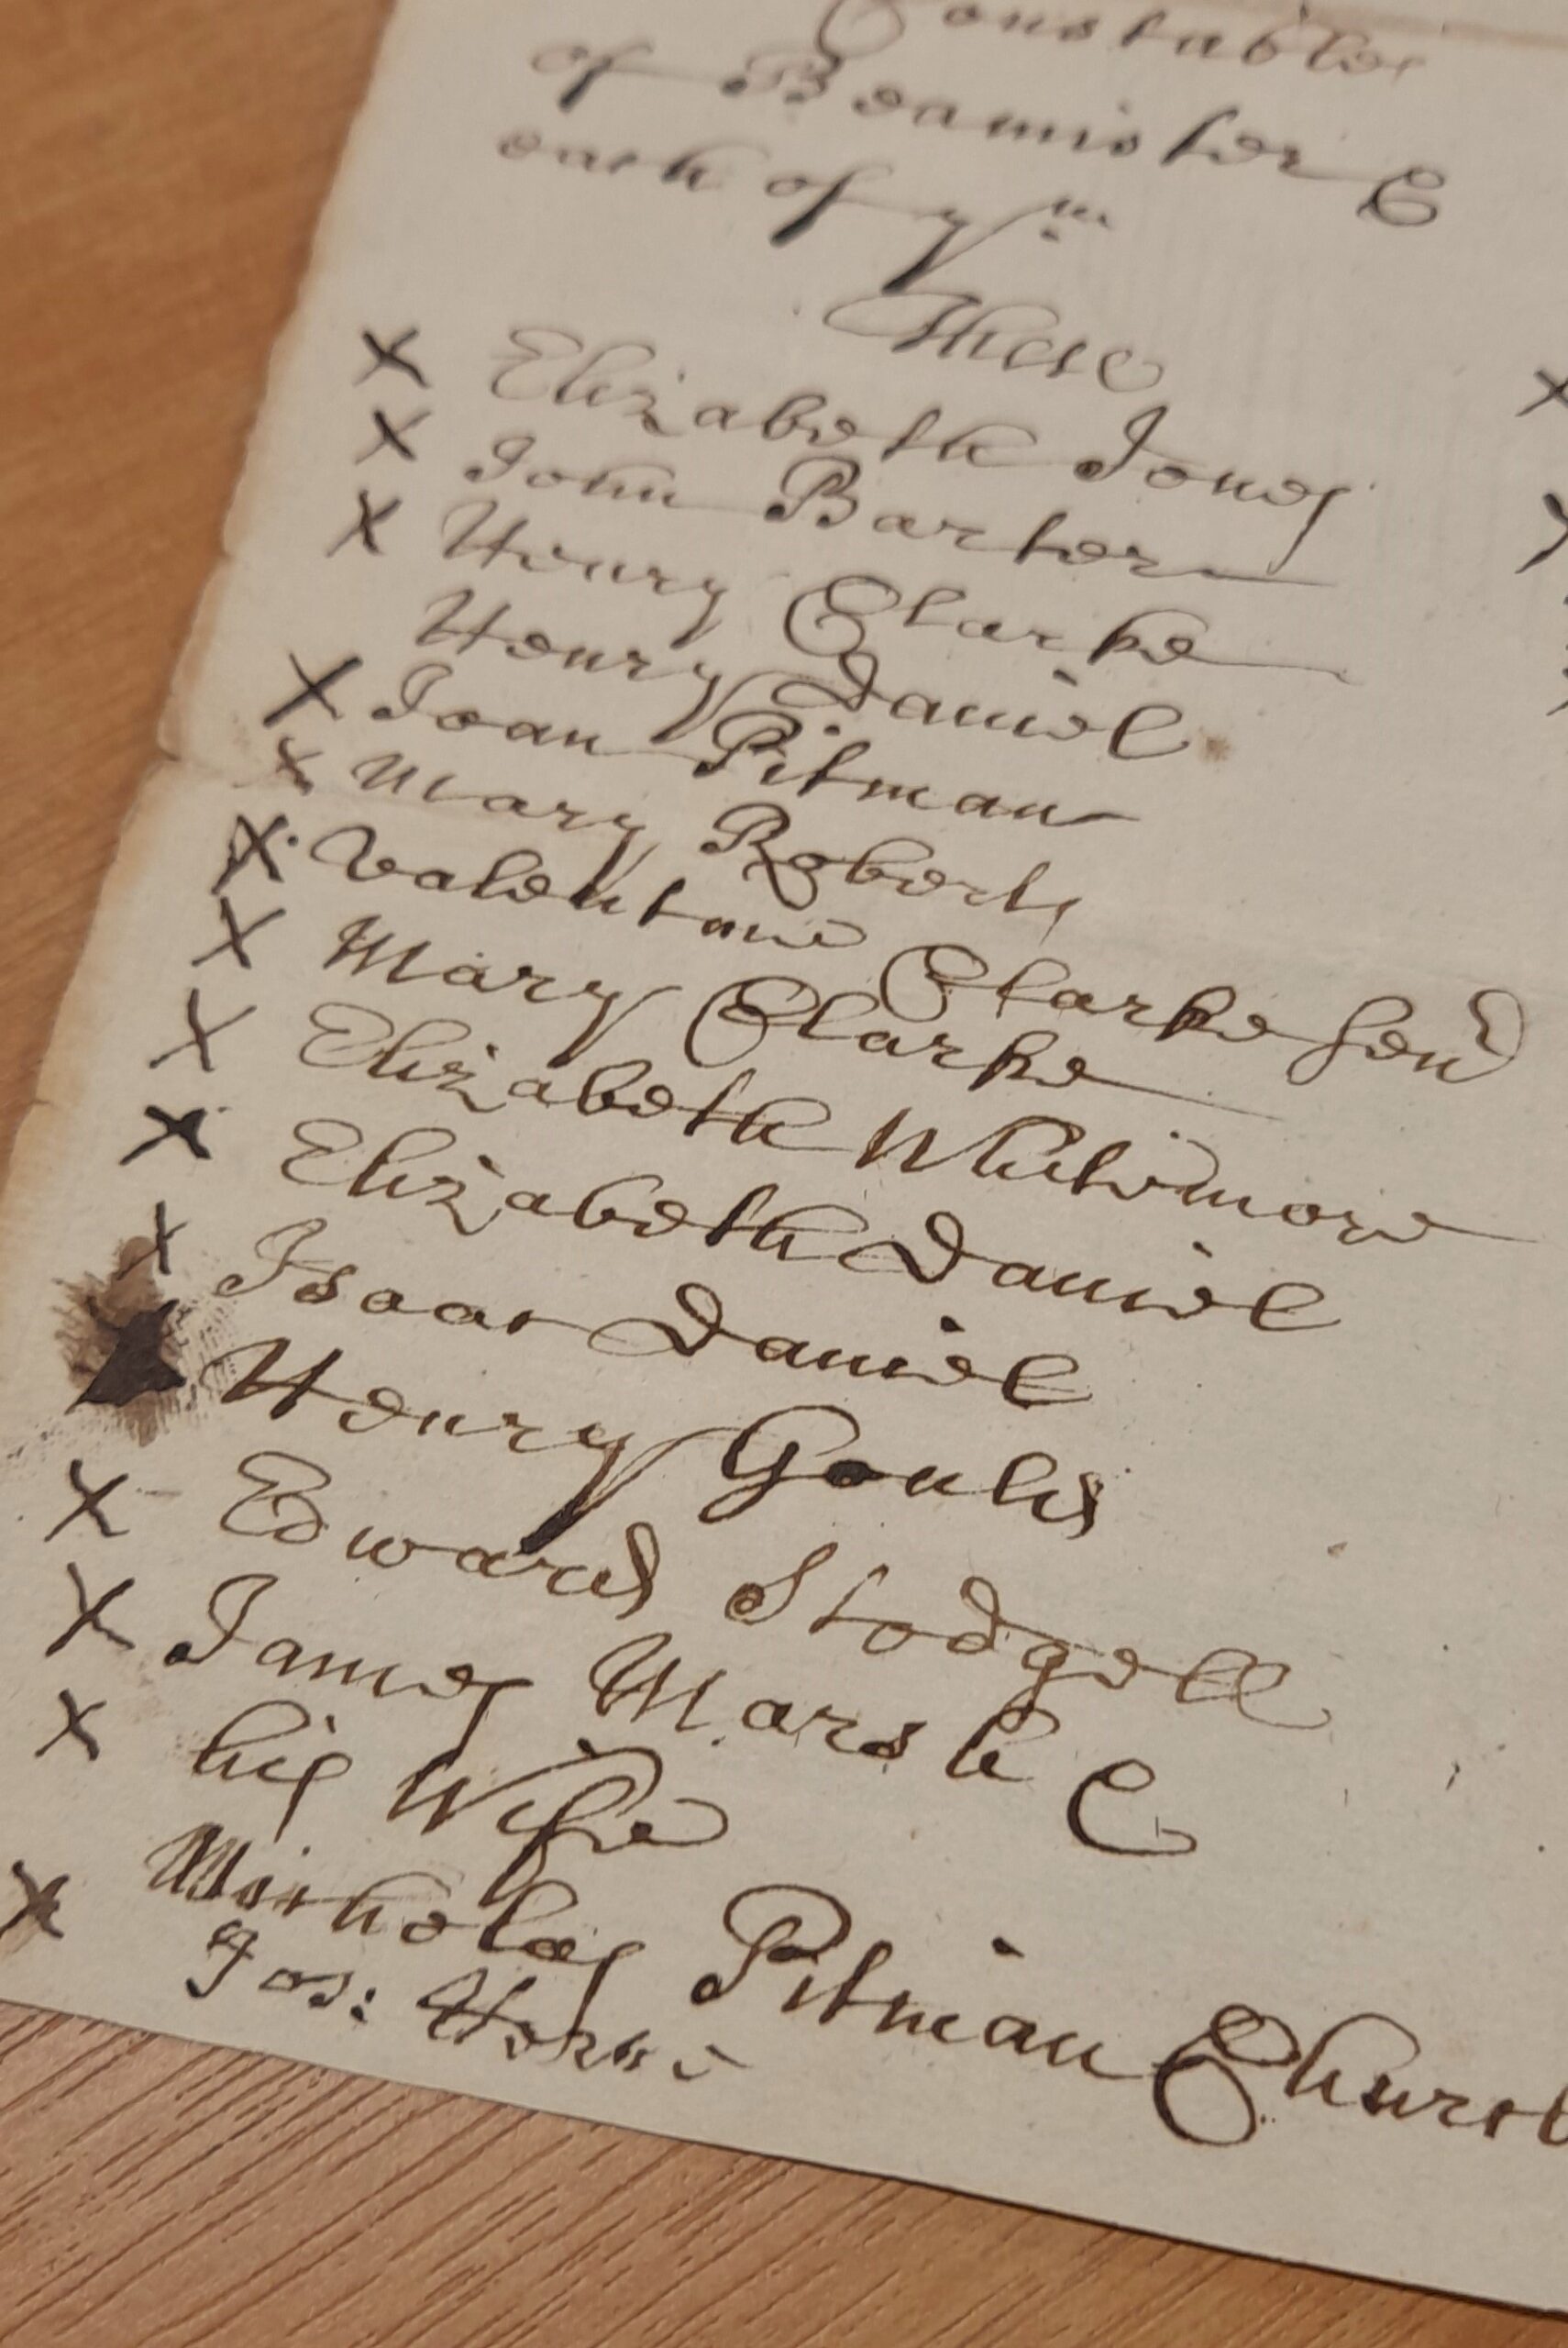 Constables
of Beamister &
each of y^m
These
X Elizabeth Jones
X John Barter
X Henry Clarke
Henry Daniel
X Joan Pitman
X Mary Roberts
X Valentine Clarke Sen^r
X Mary Clarke
X Elizabeth Whitemore
X Elizabeth Daniel
X Isaac Daniel
Henry
X Edward Stodgell
X James Marsh &
X his Wife
X Nicholas Pitman Church
Jos: Horne